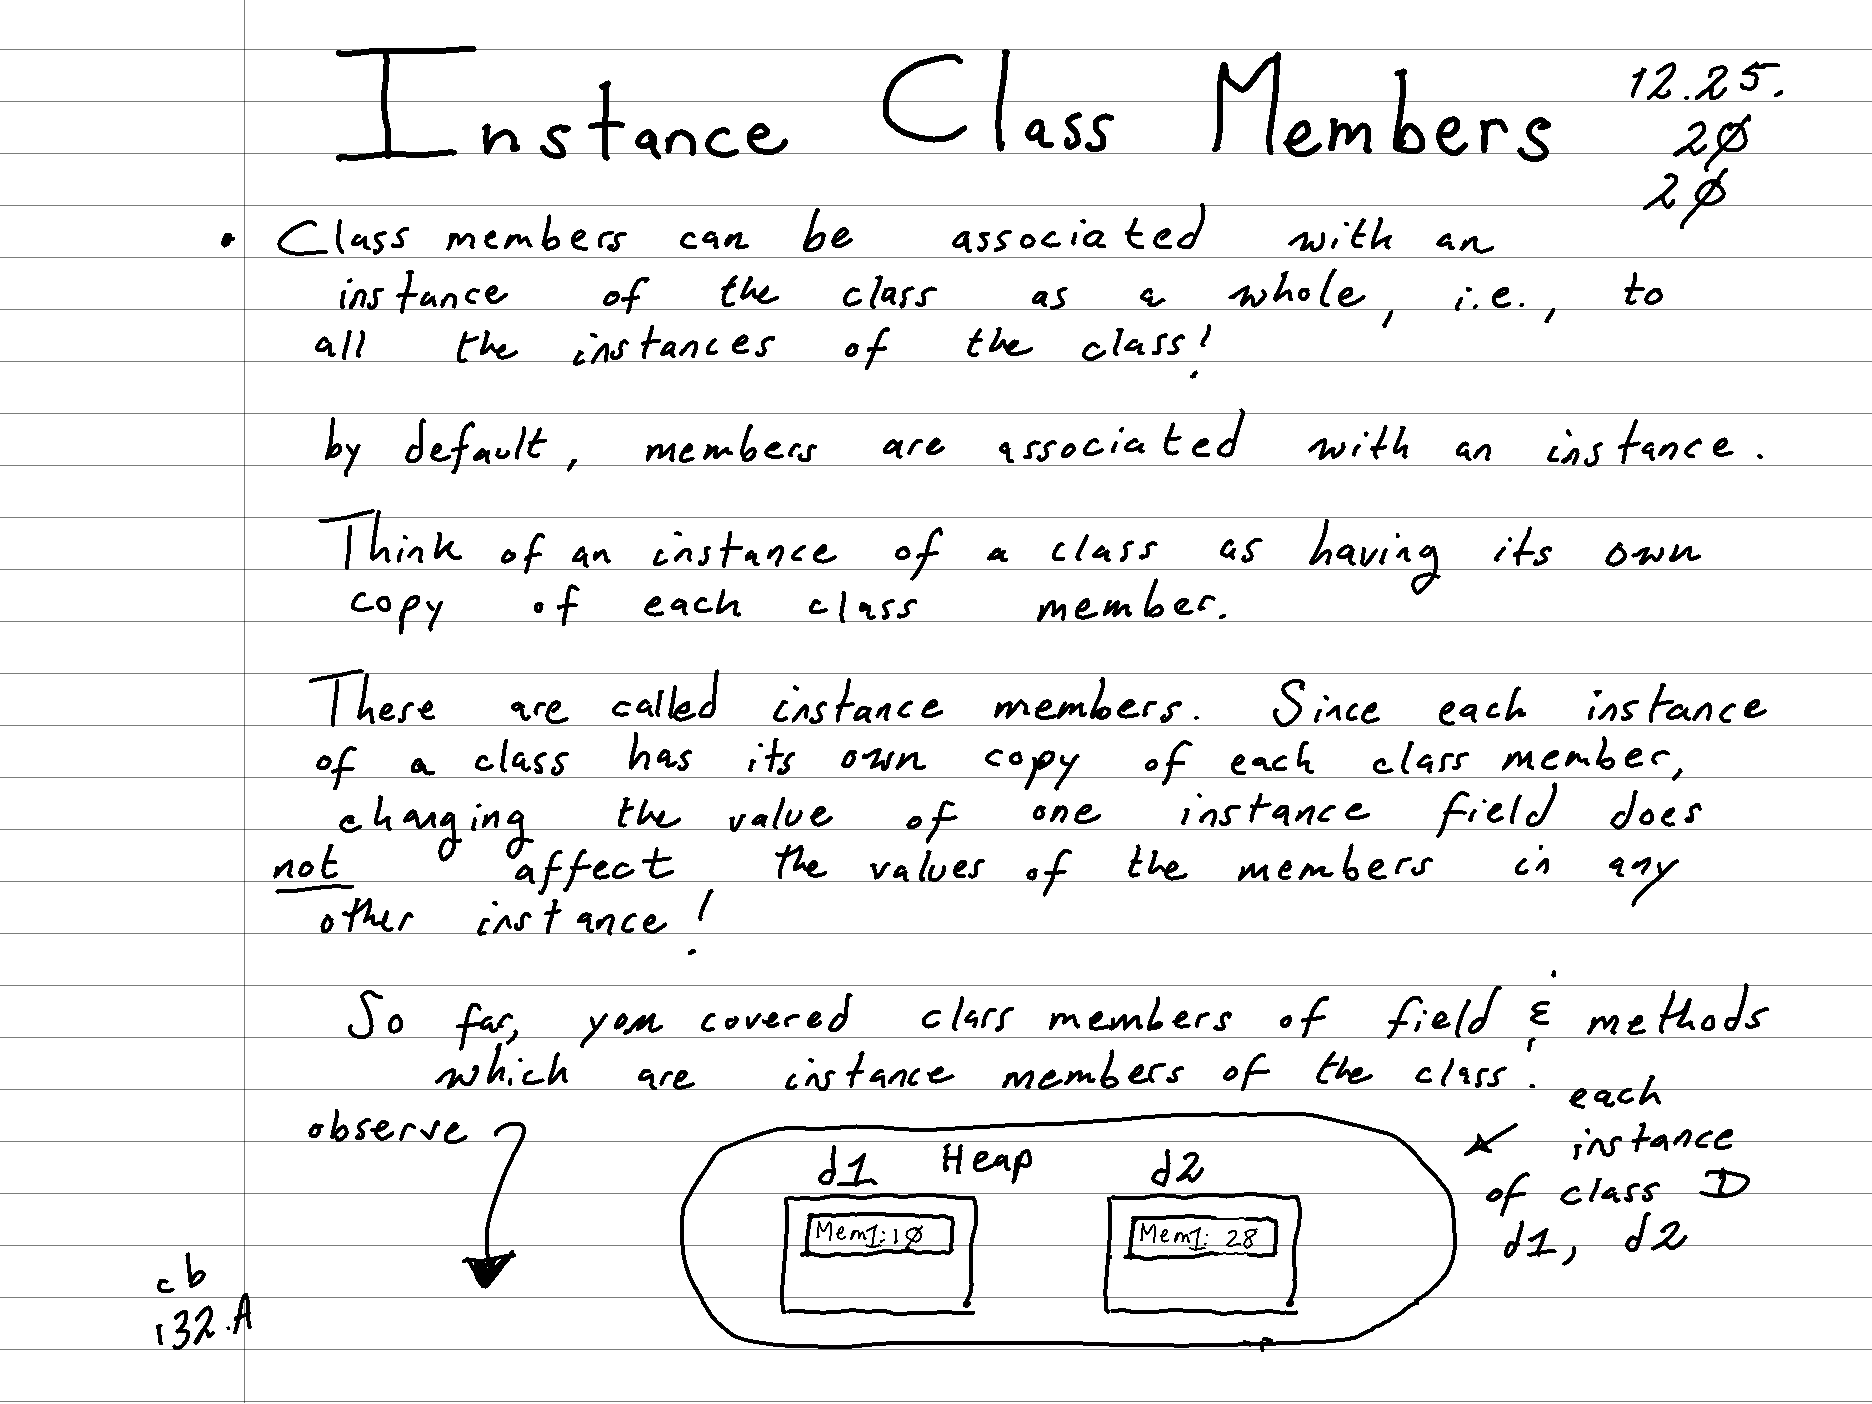 Instance Class Members
12.25.
2∅
2∅
• Class members can be associated with an
instance of the class as a whole, i.e., to
all the instances of the class!
by default, members are associated with an instance.
Think of an instance of a class as having its own
copy of each class member.
These are called instance members. Since each instance
of a class has its own copy of each class member,
changing the value of one instance field does
not affect the values of the members in any
other instance!
So far, you covered class members of field & methods
which are instance members of the class!
observe
each
instance
of class D
d1, d2
Heap
d1 d2
Mem1:1∅ Mem1: 28
cb
132.A